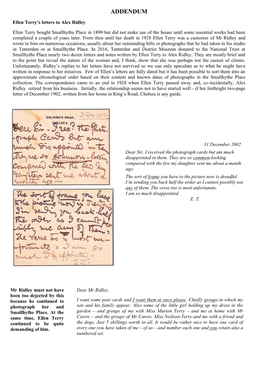 ADDENDUM
Ellen Terry's letters to Alex Ridley
Ellen Terry bought Smallhythe Place in 1899 but did not make use of the house until some essential works had been
completed a couple of years later. From then until her death in 1928 Ellen Terry was a customer of Mr Ridley and
wrote to him on numerous occasions, usually about her outstanding bills or photographs that he had taken in his studio
in Tenterden or at Smallhythe Place. In 2014, Tenterden and District Museum donated to the National Trust at
Smallhythe Place nearly two dozen letters and notes written by Ellen Terry to Alex Ridley. They are mostly brief and
to the point but reveal the nature of the woman and, I think, show that she was perhaps not the easiest of clients.
Unfortunately, Ridley's replies to her letters have not survived so we can only speculate as to what he might have
written in response to her missives. Few of Ellen's letters are fully dated but it has been possible to sort them into an
approximate chronological order based on their content and known dates of photographs in the Smallhythe Place
collection. The correspondence came to an end in 1928 when Ellen Terry passed away and, co-incidentally, Alex
Ridley retired from his business. Initially, the relationship seems not to have started well - if her forthright two-page
letter of December 1902, written from her home in King's Road, Chelsea is any guide.
31 December 1902
Dear Sir. I received the photograph cards but am much
disappointed in them. They are so common-looking
compared with the few my daughter sent me about a month
ago.
The sort of frame you have to the picture now is dreadful.
I'm sending you back half the order as I cannot possibly use
any of them. The verso too is most unfortunate.
I am so much disappointed.
E. T.
Mr Ridley must not have
been too dejected by this
because he continued to
photograph her and
Smallhythe Place. At the
same time, Ellen Terry
continued to be quite
demanding of him.
Dear Mr Ridley.
I want some post cards and I want them at once please. Chiefly groups in which my
son and his family appear. Also some of the little girl holding up my dress in the
garden – and groups of me with Miss Marion Terry – and me at home with Mr
Carew – and the groups of Mr Carew, Miss Neilson-Terry and me with a friend and
the dogs. Just 5 shillings worth in all. It would be rather nice to have one card of
every one you have taken of me – of us - and number each one and you retain also a
numbered set.